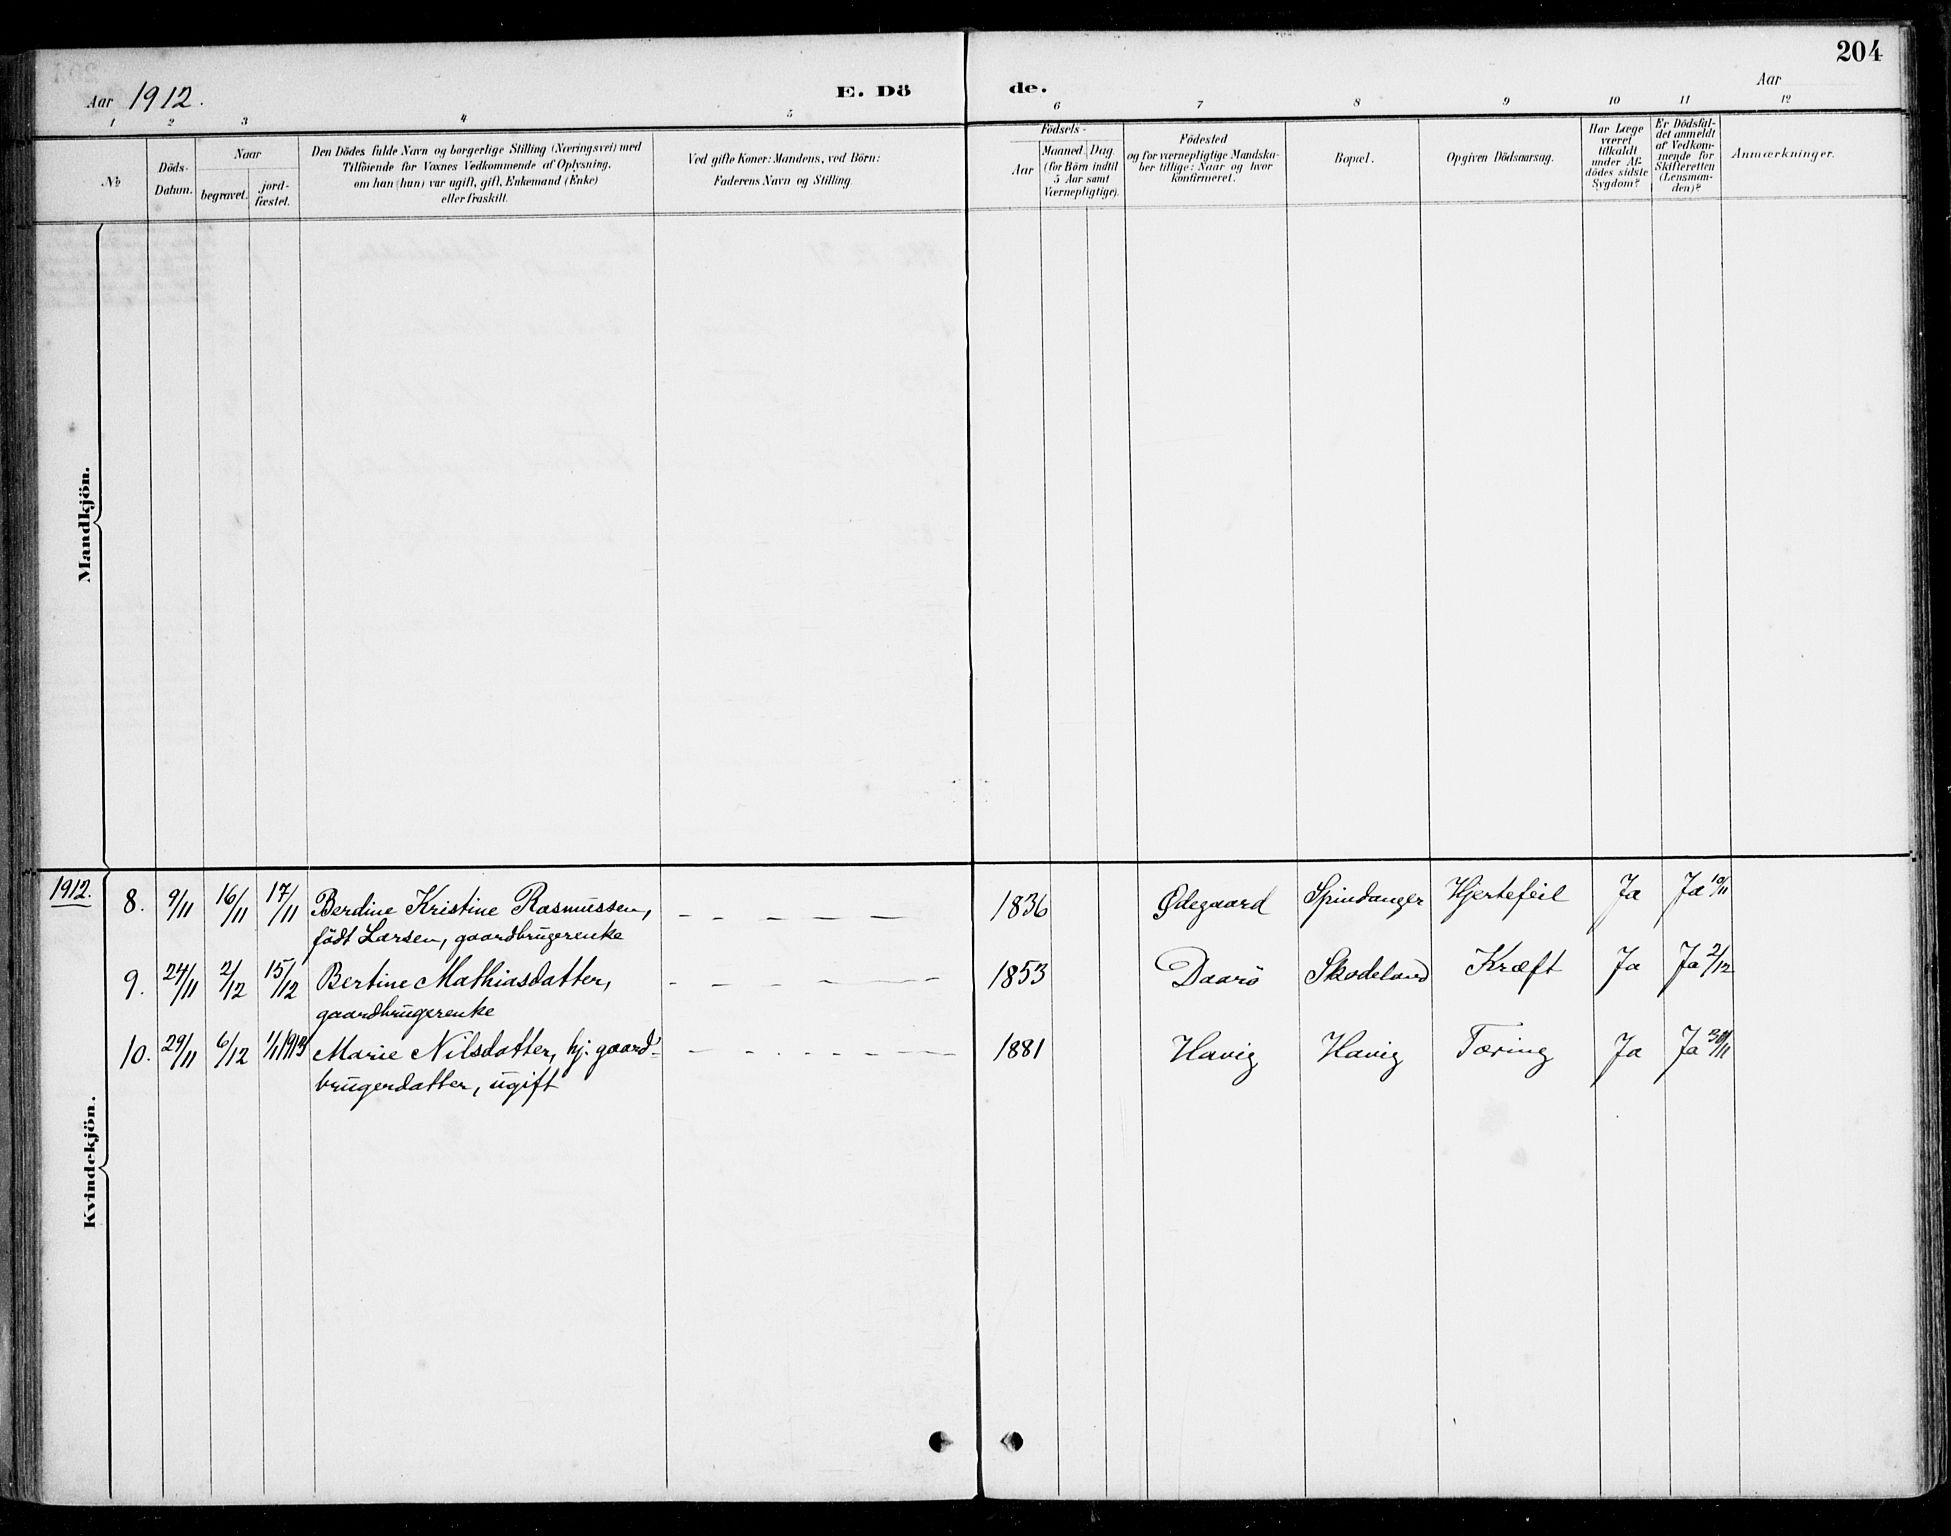 204
Aar 1912.
E. Dö
de.
Aar
1 2 3 4 5 6 7 8 9 10 11 12
No
Döds-
Datum.
Naar
begravet.
jord-
fæstet.
Den Dödes fulde Navn og borgerlige Stilling (Næringsvei) med
Tilföiende for Voxnes Vedkommende af Oplysning,
om han (hun) var ugift, gift, Enkemand (Enke)
eller fraskilt.
Ved gifte Koner: Mandens, ved Börn:
Faderens Navn og Stilling.
Födsels-
Aar
Maaned. Dag.
(for Börn indtil
5 Aar samt
Værnepligtige).
Födested
og for værnepligtige Mandska-
ber tillige: Naar og hvor
konfirmeret.
Bopæl.
Opgiven Dödsaarsag.
Har Læge
været
tilkaldt
under Af-
dödes sidste
Sygdom?
Er Dödsfal-
det anmeldt
af Vedkom-
mende for
Skifteretten
(Lensman-
den)?
Anmærkninger.
Mandkjön.
Kvindekjön.
1912.
8. 9/11 16/11 17/11 Berdine Kristine Rasmussen, 1836 Ødegaard Spindanger Hjertefeil Ja Ja 10/11
födt Larsen, gaardbrugerenke
9. 24/11 2/12 15/12 Bertine Mathiasdatter, 1853 Daarö Skodeland Kræft Ja Ja 2/12
gaardbrugerenke
10. 29/11 6/12 1/1 1913 Marie Nilsdatter, hj. gaard- 1881 Havig Havig Tæring Ja Ja 30/11
brugerdatter, ugift